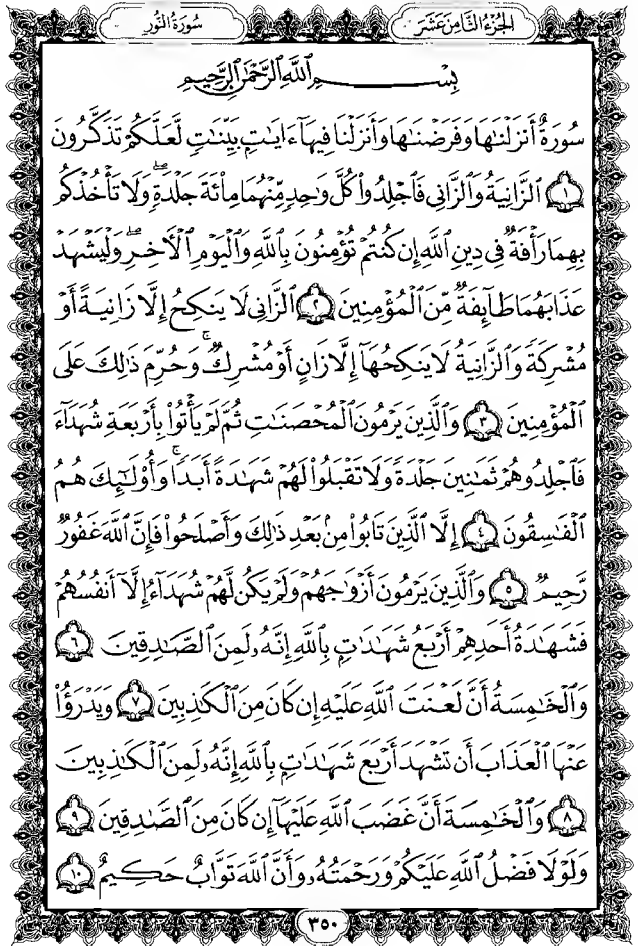 الجُزْءُ الثَّامِنَ عَشَرَ
سُورَةُ النُّورِ
بِسْمِ ٱللَّهِ ٱلرَّحْمَٰنِ ٱلرَّحِيمِ
سُورَةٌ أَنزَلْنَٰهَا وَفَرَضْنَٰهَا وَأَنزَلْنَا فِيهَآ ءَايَٰتٍۭ بَيِّنَٰتٍ لَّعَلَّكُمْ تَذَكَّرُونَ
١ ٱلزَّانِيَةُ وَٱلزَّانِى فَٱجْلِدُوا۟ كُلَّ وَٰحِدٍ مِّنْهُمَا مِا۟ئَةَ جَلْدَةٍ ۖ وَلَا تَأْخُذْكُم
بِهِمَا رَأْفَةٌ فِى دِينِ ٱللَّهِ إِن كُنتُمْ تُؤْمِنُونَ بِٱللَّهِ وَٱلْيَوْمِ ٱلْءَاخِرِ ۖ وَلْيَشْهَدْ
عَذَابَهُمَا طَآئِفَةٌ مِّنَ ٱلْمُؤْمِنِينَ ٢ ٱلزَّانِى لَا يَنكِحُ إِلَّا زَانِيَةً أَوْ
مُشْرِكَةً وَٱلزَّانِيَةُ لَا يَنكِحُهَآ إِلَّا زَانٍ أَوْ مُشْرِكٌ ۚ وَحُرِّمَ ذَٰلِكَ عَلَى
ٱلْمُؤْمِنِينَ ٣ وَٱلَّذِينَ يَرْمُونَ ٱلْمُحْصَنَٰتِ ثُمَّ لَمْ يَأْتُوا۟ بِأَرْبَعَةِ شُهَدَآءَ
فَٱجْلِدُوهُمْ ثَمَٰنِينَ جَلْدَةً وَلَا تَقْبَلُوا۟ لَهُمْ شَهَٰدَةً أَبَدًا ۚ وَأُو۟لَٰٓئِكَ هُمُ
ٱلْفَٰسِقُونَ ٤ إِلَّا ٱلَّذِينَ تَابُوا۟ مِنۢ بَعْدِ ذَٰلِكَ وَأَصْلَحُوا۟ فَإِنَّ ٱللَّهَ غَفُورٌ
رَّحِيمٌ ٥ وَٱلَّذِينَ يَرْمُونَ أَزْوَٰجَهُمْ وَلَمْ يَكُن لَّهُمْ شُهَدَآءُ إِلَّآ أَنفُسُهُمْ
فَشَهَٰدَةُ أَحَدِهِمْ أَرْبَعُ شَهَٰدَٰتٍۭ بِٱللَّهِ إِنَّهُۥ لَمِنَ ٱلصَّٰدِقِينَ ٦
وَٱلْخَٰمِسَةُ أَنَّ لَعْنَتَ ٱللَّهِ عَلَيْهِ إِن كَانَ مِنَ ٱلْكَٰذِبِينَ ٧ وَيَدْرَؤُا۟
عَنْهَا ٱلْعَذَابَ أَن تَشْهَدَ أَرْبَعَ شَهَٰدَٰتٍۭ بِٱللَّهِ إِنَّهُۥ لَمِنَ ٱلْكَٰذِبِينَ
٨ وَٱلْخَٰمِسَةَ أَنَّ غَضَبَ ٱللَّهِ عَلَيْهَآ إِن كَانَ مِنَ ٱلصَّٰدِقِينَ ٩
وَلَوْلَا فَضْلُ ٱللَّهِ عَلَيْكُمْ وَرَحْمَتُهُۥ وَأَنَّ ٱللَّهَ تَوَّابٌ حَكِيمٌ ١٠
٣٥٠